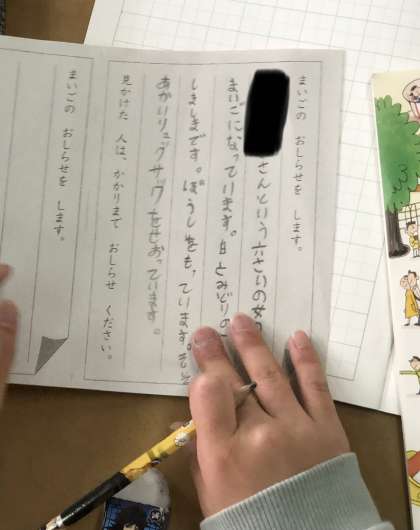 まいごの おしらせを します。
さんという六さいの女の
まいごになっています。白とみどりの
しましまです。ぼうしをも,ています。
あかいリュックサックをせおっています。
見かけた 人は、かかりまで おしらせ ください。
まいごの おしらせを します。